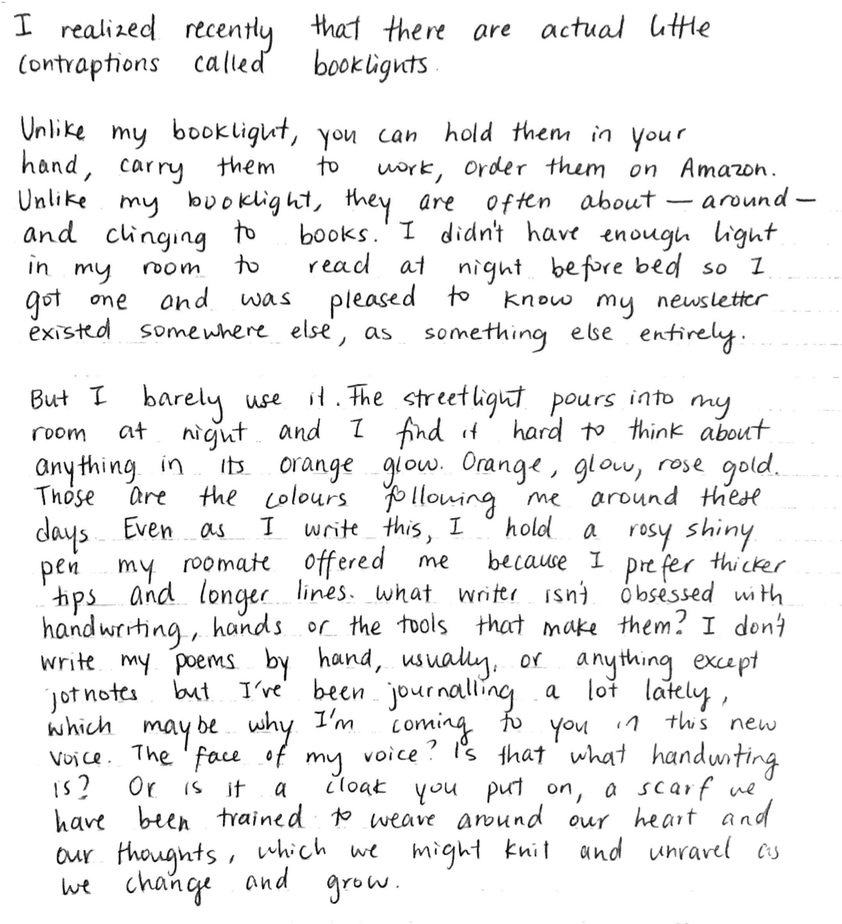 I realized recently that there are actual little
contraptions called booklights.
Unlike my booklight, you can hold them in your
hand, carry them to work, order them on Amazon.
Unlike my booklight, they are often about — around —
and clinging to books. I didn't have enough light
in my room to read at night before bed so I
got one and was pleased to know my newsletter
existed somewhere else, as something else entirely.
But I barely use it. The streetlight pours into my
room at night and I find it hard to think about
anything in its orange glow. Orange, glow, rose gold.
Those are the colours following me around these
days. Even as I write this, I hold a rosy shiny
pen my roomate offered me because I prefer thicker
tips and longer lines. What writer isn't obsessed with
handwriting, hands or the tools that make them? I don't
write my poems by hand, usually, or anything except
jotnotes but I've been journalling a lot lately,
which maybe why I'm coming to you in this new
voice. The face of my voice? Is that what handwriting
is? Or is it a cloak you put on, a scarf we
have been trained to weave around our heart and
our thoughts, which we might knit and unravel as
we change and grow.